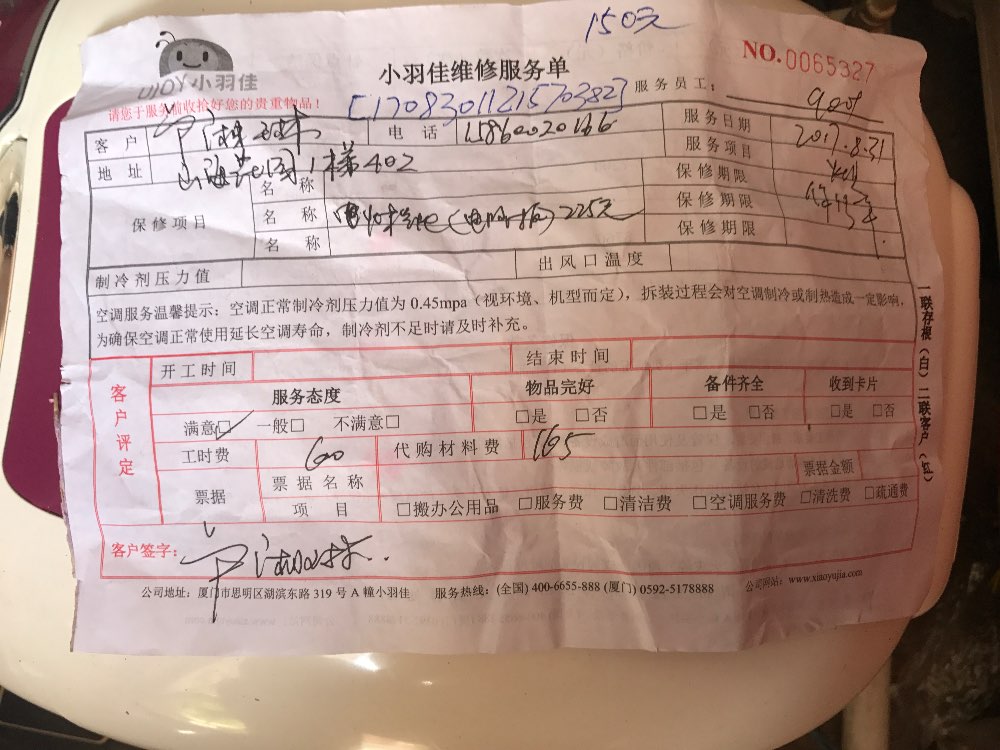 150元
UJOY小羽佳
小羽佳维修服务单
NO.0065327
请您于服务前收拾好您的贵重物品！
[1708301121570382]
服务员工：
客户
电话
服务日期 2017.8.31
地址 1梯402
服务项目
保修项目
名称
保修期限
名称 225元
保修期限
名称
保修期限
制冷剂压力值
出风口温度
空调服务温馨提示：空调正常制冷剂压力值为 0.45mpa（视环境、机型而定），拆装过程会对空调制冷或制热造成一定影响.
为确保空调正常使用延长空调寿命，制冷剂不足时请及时补充。
客户评定
开工时间
结束时间
服务态度
物品完好
备件齐全
收到卡片
满意□✓ 一般□ 不满意□
□是 □否
□是 □否
□是 □否
工时费 60
代购材料费 165
票据
票据名称
票据金额
项目
□搬办公用品 □服务费 □清洁费 □空调服务费 □清洗费 □疏通费
客户签字：
公司地址：厦门市思明区湖滨东路 319 号 A 幢小羽佳 服务热线：(全国) 400-6655-888 (厦门) 0592-5178888 公司网站：www.xiaoyujia.com
一联存根（白）二联客户（红）